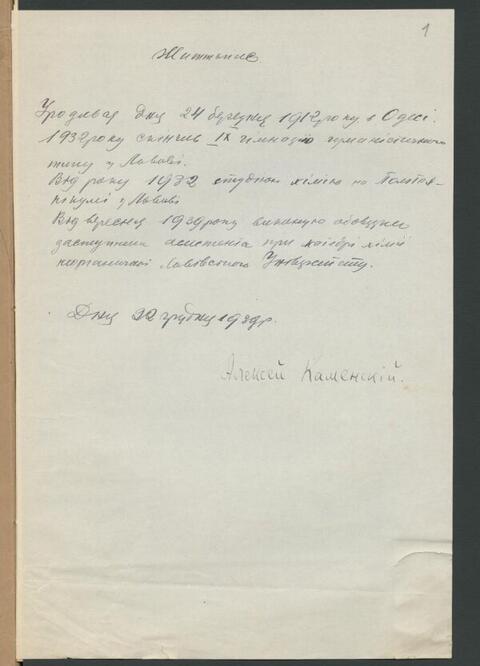 1
Життєпис
Уродився дня 24 березня 1912 року в Одесі.
1932 року скінчив IX гімназію гуманістичного
типу у Львові.
Від року 1932 студіюю хімію на Політех-
ніці у Львові
Від вересня 1939 року виконую обовязки
заступника асистента при катедрі хімії
неорганичної Львівського Університету.
Дня 22 грудня 1939 р.
Алексей Каменскій.